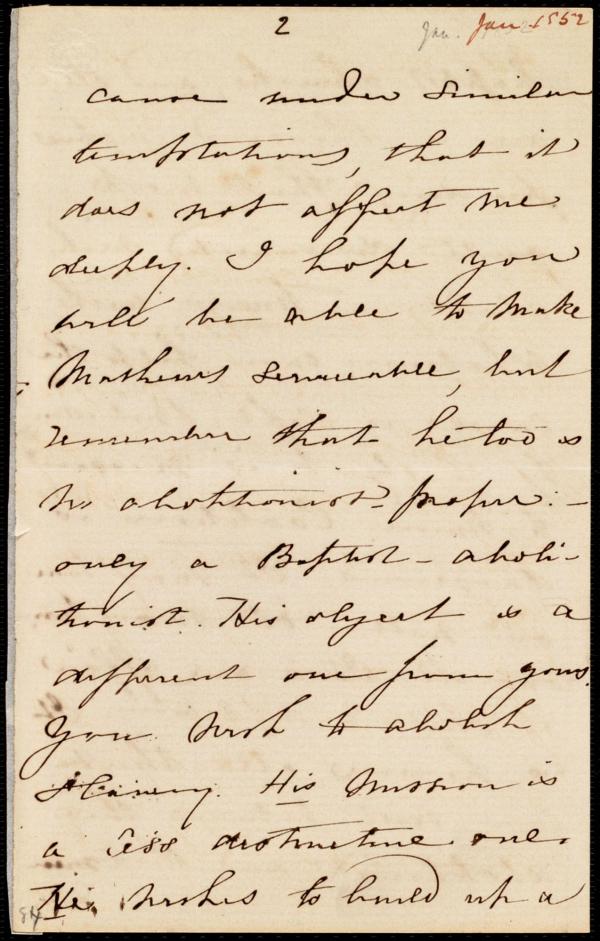 2
Jan. Jan 1852
cause under similar
temptations, that it
does not affect me
deeply. I hope you
will be able to make
Mathews serviceable, but
remember that he too is
no abolitionist-proper: -
only a Baptist-aboli-
tionist. His object is a
different one from yours.
You wish to abolish
slavery. His mission is
a less distinctive one.
He wishes to build up a